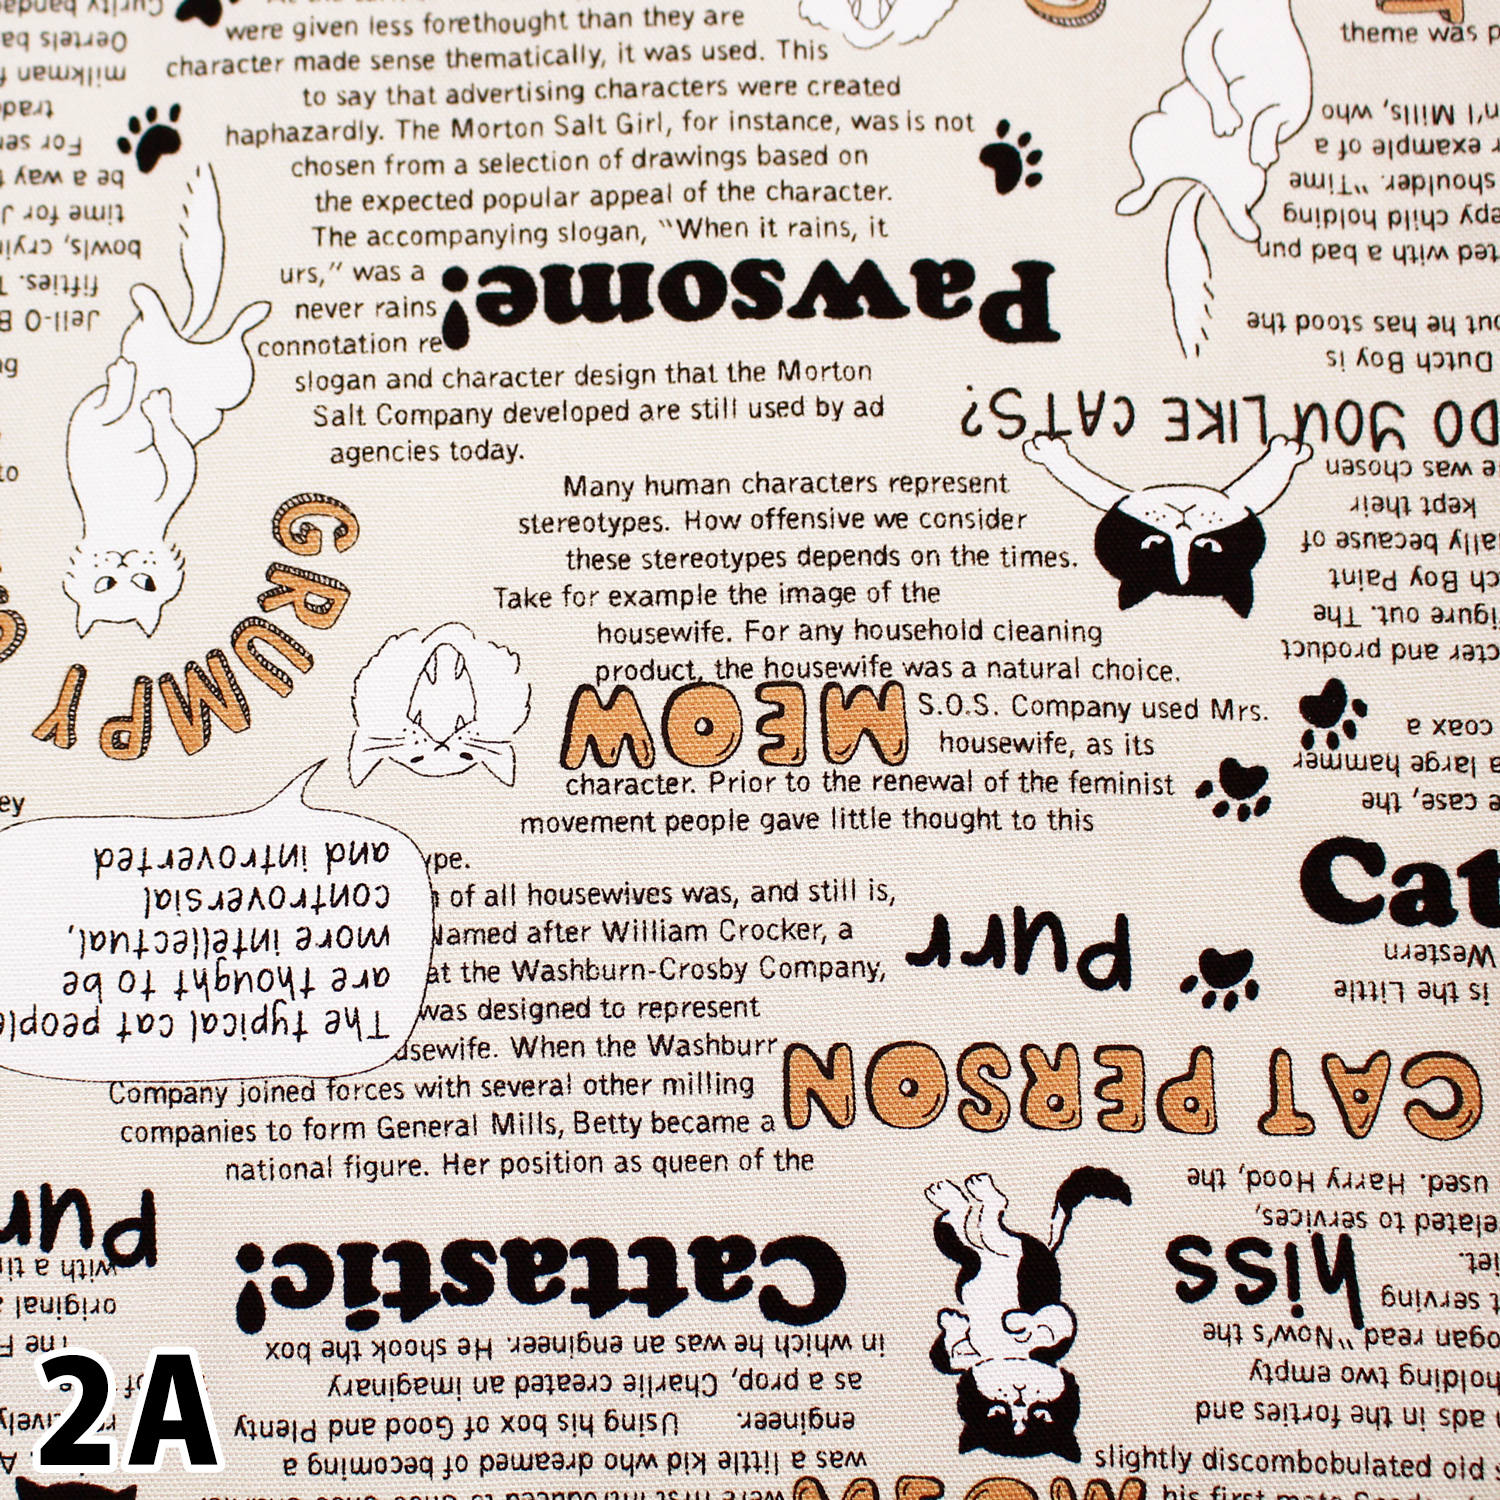 were given less forethought than they are
character made sense thematically, it was used. This
to say that advertising characters were created
haphazardly. The Morton Salt Girl, for instance, was is not
chosen from a selection of drawings based on
the expected popular appeal of the character.
The accompanying slogan, "When it rains, it
urs," was a
never rains
connotation re
slogan and character design that the Morton
Salt Company developed are still used by ad
agencies today.
Pawsome!
Many human characters represent
stereotypes. How offensive we consider
these stereotypes depends on the times.
Take for example the image of the
housewife. For any household cleaning
product, the housewife was a natural choice.
S.O.S. Company used Mrs.
housewife, as its
character. Prior to the renewal of the feminist
movement people gave little thought to this
ype.
of all housewives was, and still is,
Named after William Crocker, a
at the Washburn-Crosby Company,
was designed to represent
usewife. When the Washburr
Company joined forces with several other milling
companies to form General Mills, Betty became a
national figure. Her position as queen of the
MEOW
GRUMPY
DO YOU LIKE CATS?
The typical cat people
are thought to be
more intellectual,
controversial
and introverted
purr
Cat
CAT PERSON
purr
Cattastic!
hiss
was a little kid who dreamed of becoming a
engineer. Using his box of Good and Plenty
as a prop, Charlie created an imaginary
in which he was an engineer. He shook the box
ads in the forties and
holding two empty
ogan read "Now's the
t serving
iet.
elated to services,
used. Harry Hood, the
is the Little
Western
e case, the
a large hammer
coax a
cter and product
figure out. The
ch Boy Paint
ally because of
kept their
e was chosen
Dutch Boy is
out he has stood the
ted with a bad pun
epy child holding
shoulder. "Time
r example of a
n'l Mills, who
theme was p
Jell-O B
fifties. T
bowls, cryin
time for J
be a way t
For ser
trade
milkman f
Oertels ba
Curity bandag
with a tin
original a
The F
slightly discombobulated old s
his first mate
2A